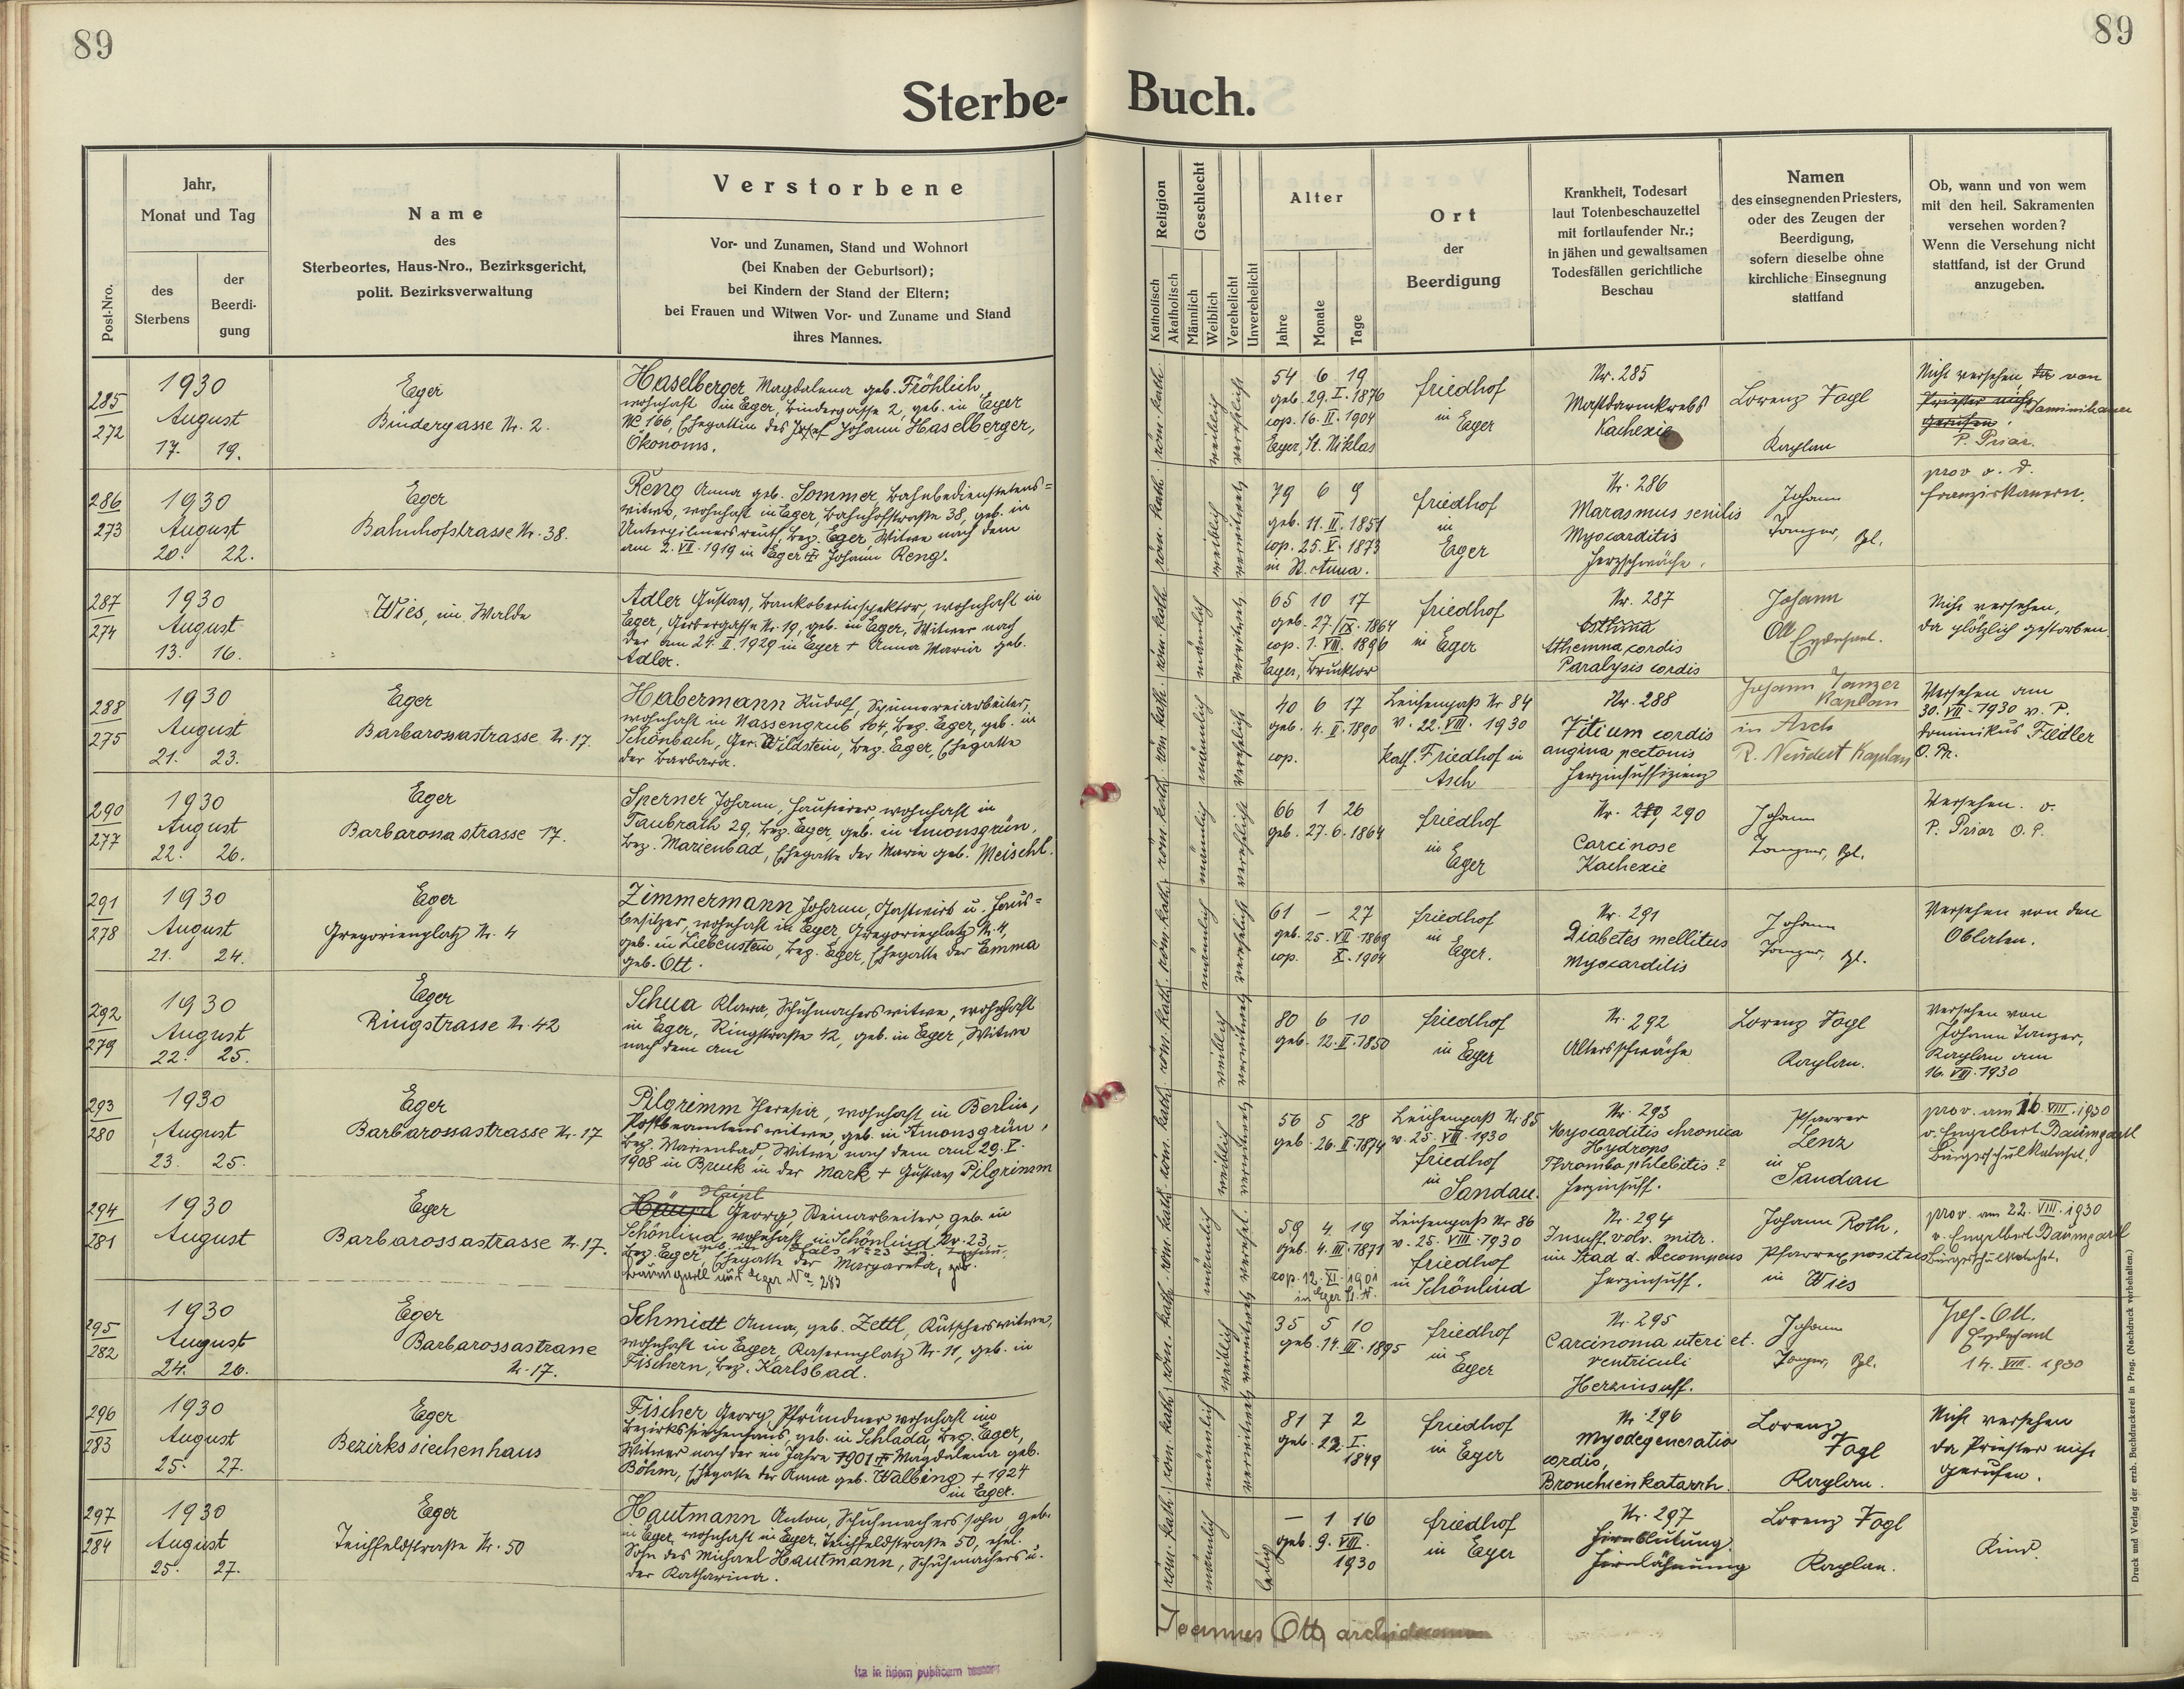 89
89
Sterbe- Buch.
Post-Nro.
Jahr,
Monat und Tag
des
Sterbens
der
Beerdi-
gung
Name
des
Sterbeortes, Haus-Nro., Bezirksgericht,
polit. Bezirksverwaltung
Verstorbene
Vor- und Zunamen, Stand und Wohnort
(bei Knaben der Geburtsort);
bei Kindern der Stand der Eltern;
bei Frauen und Witwen Vor- und Zuname und Stand
ihres Mannes.
Religion
Katholisch
Akatholisch
Geschlecht
Männlich
Weiblich
Verehelicht
Unverehelicht
Alter
Jahre
Monate
Tage
Ort
der
Beerdigung
Krankheit, Todesart
laut Totenbeschauzettel
mit fortlaufender Nr.;
in jähen und gewaltsamen
Todesfällen gerichtliche
Beschau
Namen
des einsegnenden Priesters,
oder des Zeugen der
Beerdigung,
sofern dieselbe ohne
kirchliche Einsegnung
stattfand
Ob, wann und von wem
mit den heil. Sakramenten
versehen worden?
Wenn die Versehung nicht
stattfand, ist der Grund
anzugeben.
285
272
1930
August
17. 19.
Eger
Bindergasse Nr. 2.
Haselberger Magdalena geb. Fröhlich
wohnhaft in Eger, Bindergasse 2, geb. in Eger
No 166, Ehegattin des Josef Johann Haselberger,
Ökonoms.
röm. kath.
weiblich
verehelicht
54 6 19
geb. 29. I. 1876
cop. 16. II. 1904
Eger, St. Niklas
Friedhof
in Eger
Nr. 285
Mastdarmkrebs
Kachexie
Lorenz Vogl
Kaplan
Nicht versehen, von
Priester nicht Dominikaner
gerufen.
P. Prior.
286
273
1930
August
20. 22.
Eger
Bahnhofstrasse Nr. 38.
Reng Anna geb. Sommer, Bahnbedienstetens-
witwe, wohnhaft in Eger, Bahnhofstraße 38, geb. in
Unterpilmersreuth, Bez. Eger, Witwe nach dem
am 2. VII. 1919 in Eger + Johann Reng.
röm. kath.
weiblich
verwitwet
79 6 9
geb. 11. II. 1851
cop. 25. V. 1873
in St. Anna.
Friedhof
in
Eger
Nr. 286
Marasmus senilis
Myocarditis
Herzschwäche.
Johann
Tanzer, Kpl.
prov. v. d.
Franziskanern.
287
274
1930
August
13. 16.
Wies, im Walde
Adler Gustav, Bankoberinspektor, wohnhaft in
Eger, Gerbergasse Nr. 19, geb. in Eger, Witwer nach
der am 24. II. 1929 in Eger + Anna Maria geb.
Adler.
röm. kath.
männlich
verwitwet
65 10 17
geb. 27. IX. 1864
cop. 1. VIII. 1896
Eger, Bruktor
Friedhof
in Eger
Nr. 287
Asthma
Asthemna cordis
Paralysis cordis
Johann
Ott
Erzdechant.
Nicht versehen,
da plötzlich gestorben.
288
275
1930
August
21. 23.
Eger
Barbarossastrasse Nr. 17.
Habermann Rudolf, Spinnereiarbeiter,
wohnhaft in Nassengrub 164, Bez. Eger, geb. in
Schönbach, Ger. Wildstein, Bez. Eger, Ehegatte
der Barbara.
röm. kath.
männlich
verehelicht
40 6 17
geb. 4. II. 1890
cop.
Leichenpaß Nr 84
v. 22. VIII. 1930
kath. Friedhof in
Asch
Nr. 288
Vitium cordis
angina pectoris
Herzinsuffizienz
Johann Tanzer
Kaplan
in Asch
R. Neudert Kaplan
Versehen am
30. VII. 1930 v. P.
Dominikus Fiedler
O. Pr.
290
277
1930
August
22. 26.
Eger
Barbarossastrasse 17.
Sperner Johann, Hausierer, wohnhaft in
Taubrath 29, Bez. Eger, geb. in Amonsgrün,
Bez. Marienbad, Ehegatte der Marie geb. Meischl.
röm. kath.
männlich
verehelicht
66 1 26
geb. 27. 6. 1864
Friedhof
in
Eger
Nr. 290
Carcinose
Kachexie
Johann
Tanzer, Kpl.
Versehen. v.
P. Prior O. P.
291
278
1930
August
21. 24.
Eger
Gregorienplatz Nr. 4
Zimmermann Johann, Gastwirt u. Haus-
besitzer, wohnhaft in Eger, Gregorienplatz Nr. 4,
geb. in Liebenstein, Bez. Eger, Ehegatte der Emma
geb. Ott.
röm. kath.
männlich
verehelicht
61 — 27
geb. 25. VII. 1869
cop. X. 1904
Friedhof
in
Eger.
Nr. 291
Diabetes mellitus
Myocarditis
Johann
Tanzer, Kpl.
Versehen von den
Oblaten.
292
279
1930
August
22. 25.
Eger
Ringstrasse Nr. 42
Schua Klara, Schuhmacherswitwe, wohnhaft
in Eger, Ringstraße 42, geb. in Eger, Witwe
nach dem am
röm. kath.
weiblich
verwitwet
80 6 10
geb. 12. II. 1850
Friedhof
in Eger
Nr. 292
Altersschwäche
Lorenz Vogl
Kaplan.
Versehen von
Johann Tanzer,
Kaplan am
16. VIII. 1930
293
280
1930
August
23. 25.
Eger
Barbarossastrasse Nr. 17
Pilgrimm Theresia, wohnhaft in Berlin,
Postbeamtenswitwe, geb. in Amonsgrün,
Bez. Marienbad, Witwe nach dem am 29. V.
1908 in Bruck in der Mark + Gustav Pilgrimm
röm. kath.
weiblich
verwitwet
56 5 28
geb. 26. II. 1874
Leichenpaß Nr. 85
v. 25. VIII. 1930
Friedhof
in
Sandau.
Nr. 293
Myocarditis chronica
Hydrops
Thrombophlebitis?
Herzinsuff.
Pfarrer
Lenz
in
Sandau
prov. am 16. VIII. 1930
v. Engelbert Baumgartl
Bürgerschulkatechet.
294
281
1930
August
Eger
Barbarossastrasse Nr. 17.
Haupl Georg, Steinarbeiter, geb. in
Schönlind, wohnhaft in Schönlind Nr. 23,
Bez. Eger, Ehegatte der Margareta, geb.
Baumgartl aus Eger No 283
röm. kath.
männlich
verehel.
59 4 19
geb. 4. III. 1871
cop. 12. XI. 1901
in Eger St. N.
Leichenpaß Nr 86
v. 25. VIII. 1930
Friedhof
in Schönlind
Nr. 294
Insuff. valv. mitr.
im Stad d. Decompens
Herzinsuff.
Johann Roth,
Pfarrexpositus
in Wies
prov. am 22. VIII. 1930
v. Engelbert Baumgartl
Bürgerschulkatechet.
295
282
1930
August
24. 26.
Eger
Barbarossastrasse
Nr. 17.
Schmidt Anna, geb. Zettl, Kutscherswitwe,
wohnhaft in Eger, Kasernplatz Nr. 11, geb. in
Fischern, Bez. Karlsbad.
röm. kath.
weiblich
verwitwet
35 5 10
geb. 14. III. 1895
Friedhof
in
Eger
Nr. 295
Carcinoma uteri et.
ventriculi
Herzinsuff.
Johann
Tanzer, Kpl.
Joh. Ott.
Erzdechant
14. VIII. 1930
296
283
1930
August
25. 27.
Eger
Bezirkssiechenhaus
Fischer Georg, Pfründner wohnhaft im
Bezirkssiechenhaus, geb. in Schlada, Bez. Eger,
Witwer nach der im Jahre 1901 + Magdalena geb.
Böhm, Ehegatte der Anna geb. Walbing + 1924
in Eger.
röm. kath.
männlich
verwitwet
81 7 2
geb. 23. I.
1849
Friedhof
in Eger
Nr. 296
Myodegeneratio
cordis,
Bronchienkatarrh.
Lorenz
Vogl
Kaplan.
Nicht versehen
da Priester nicht
gerufen.
297
284
1930
August
25. 27.
Eger
Teichfeldstraße Nr. 50
Hautmann Anton, Schuhmacherssohn geb.
in Eger, wohnhaft in Eger, Teichfeldstraße 50, ehel.
Sohn des Michael Hautmann, Schuhmachers u.
der Katharina.
röm. kath.
männlich
ledig
— 1 16
geb. 9. VII.
1930
Friedhof
in Eger
Nr. 297
Hirnblutung
Hirnlähmung
Lorenz Vogl
Kaplan.
Kind.
Joannes Ott, archidecanus
Ita in fidem publicam testor
Druck und Verlag der erzb. Buchdruckerei in Prag. (Nachdruck vorbehalten.)